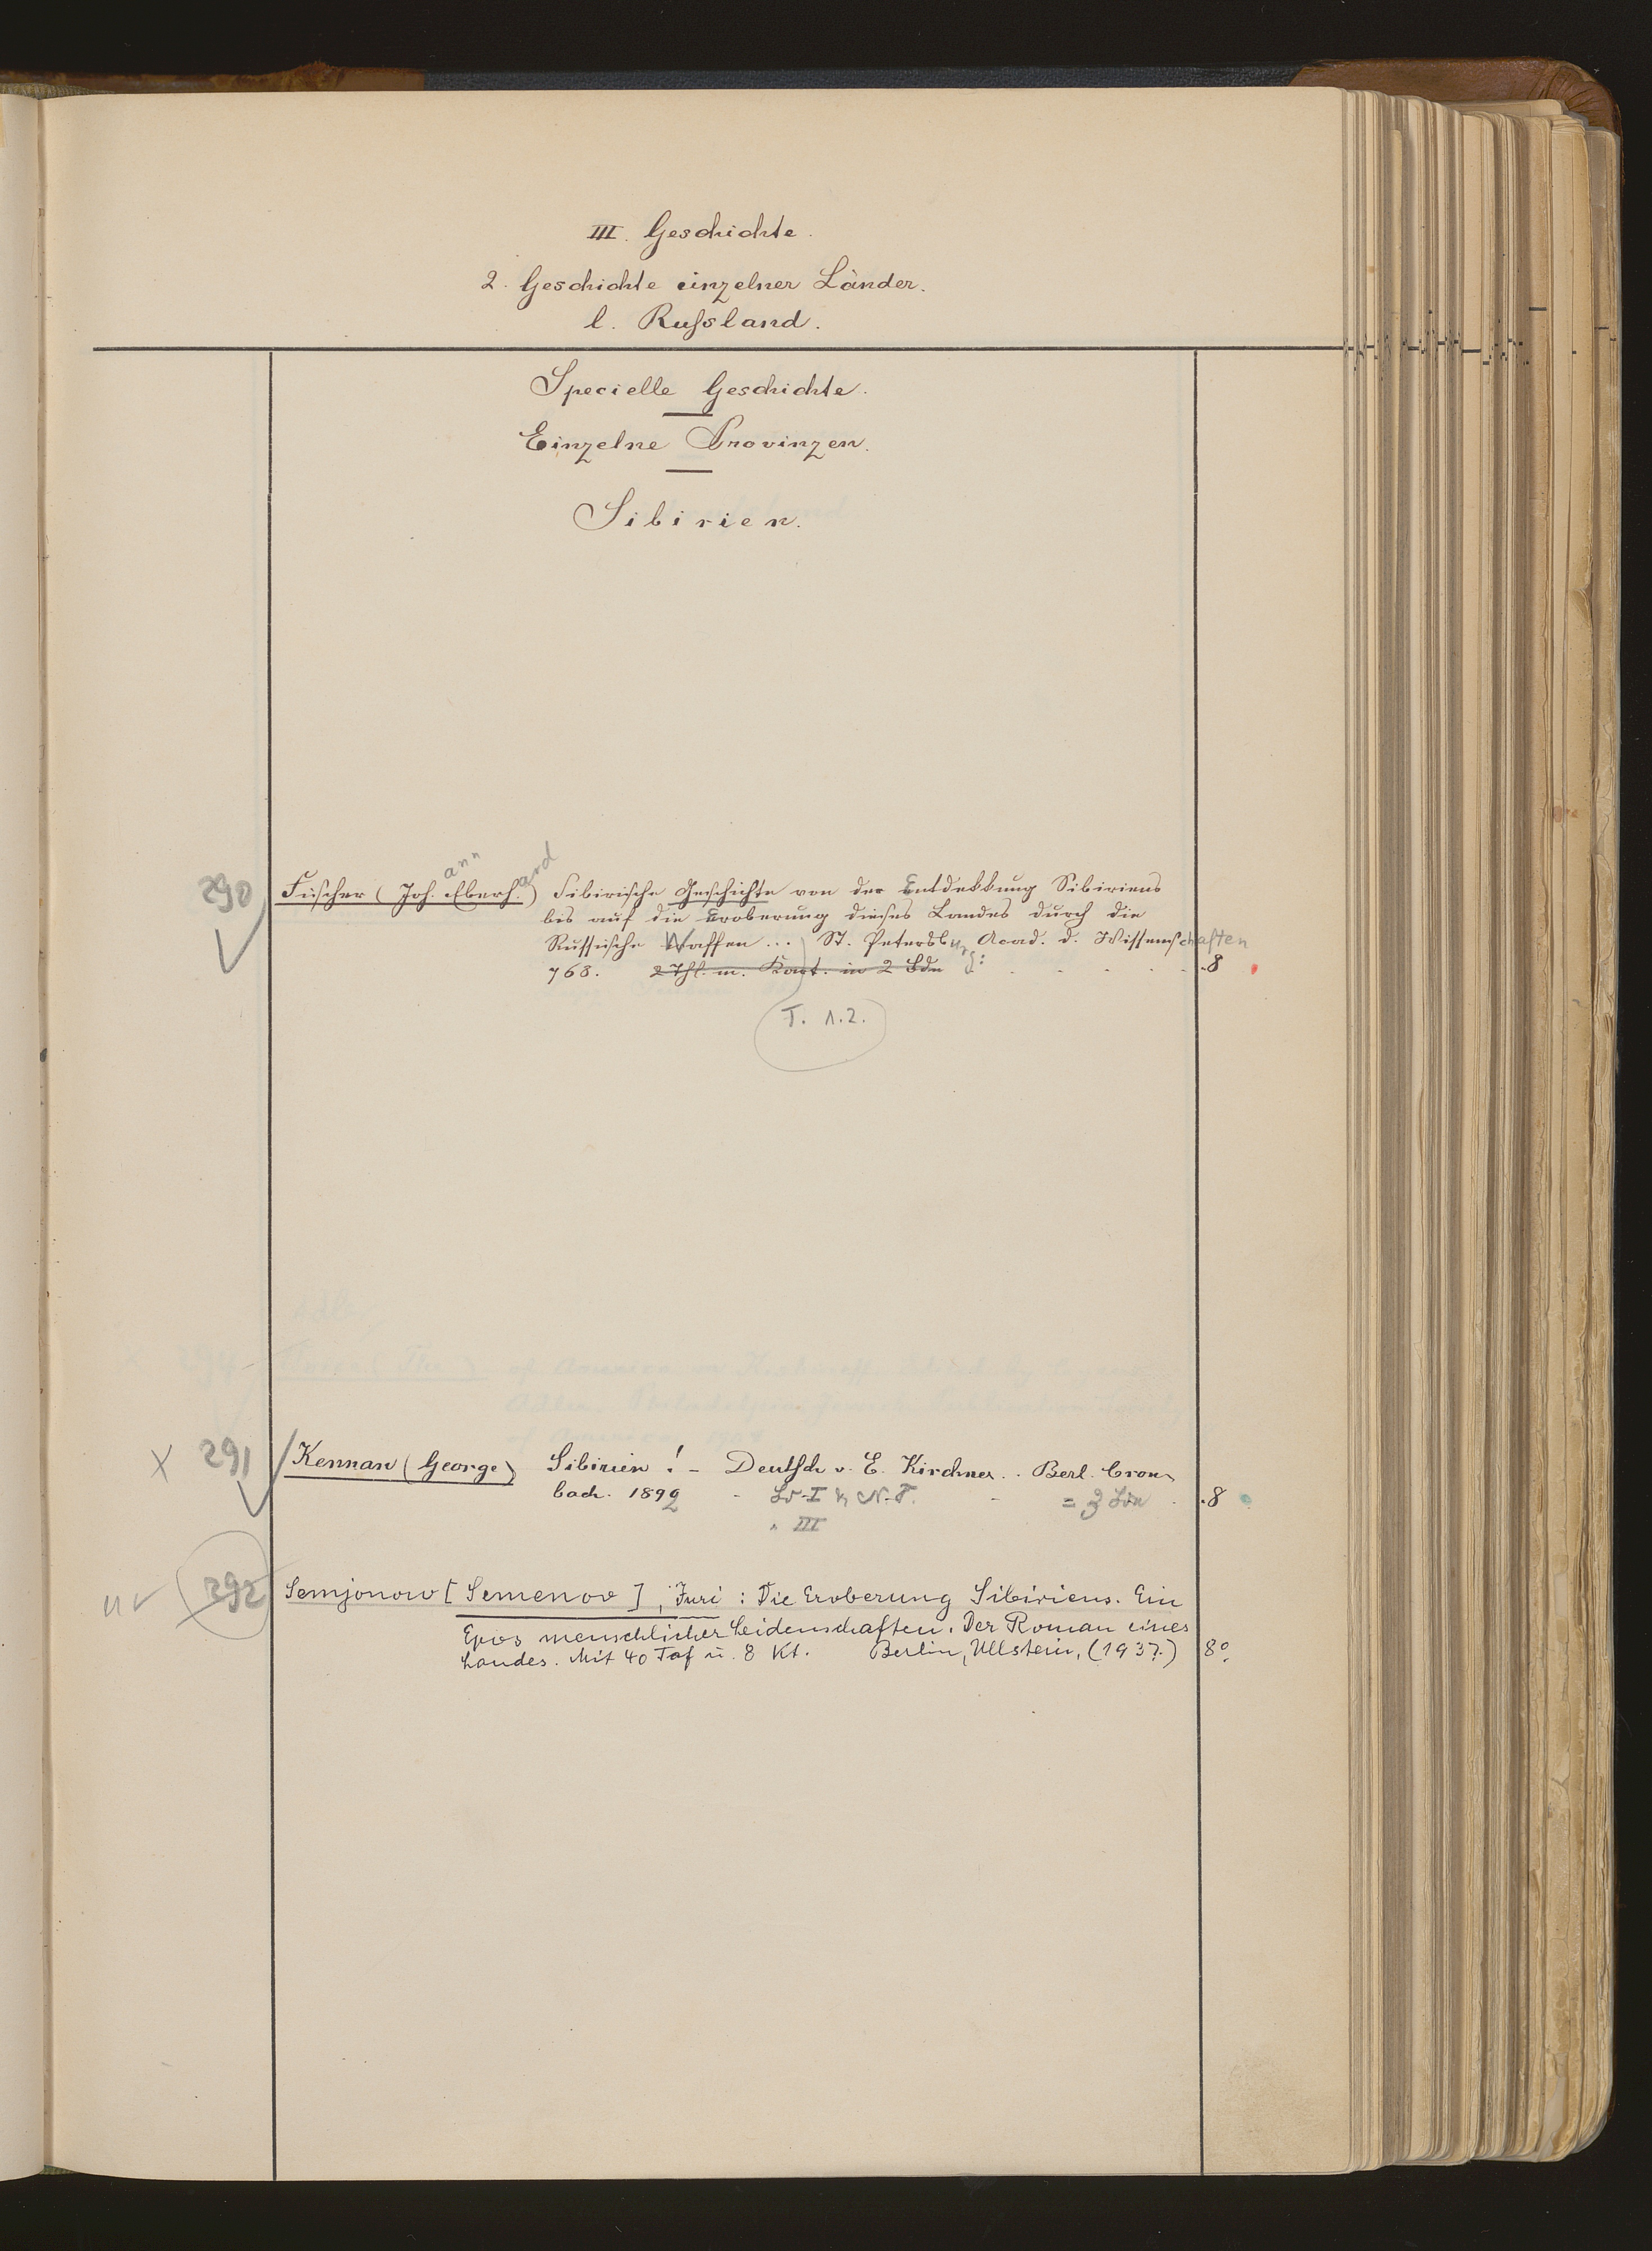 III. Geschichte.
2. Geschichte einzelner Länder.
l. Russland.
Specielle Geschichte.
Einzelne Provinzen.
Sibirien.
290 Fischer (Joh.ann Eberh.ard) Sibirische Geschichte von der Entdekkung Sibiriens
bis auf die Eroberung dieses Landes durch die
Russische Waffen... St. Petersburg: Acad. d. Wissenschaften
768. 2 Thl. m. Kart. in 2 Bdn . . . . 8
T. 1.2.
X 291 Kennan (George) Sibirien! - Deutsch v. E. Kirchner. . Berl. Cron-
bach. 1892 - I N. F. - = 3 . 8
" III
292 Semjonow [Semenov], Juri: Die Eroberung Sibiriens. Ein
Epos menschlicher Leidenschaften. Der Roman eines
Landes. Mit 40 Taf u. 8 Kt. Berlin, Ullstein, (1937.) 8°